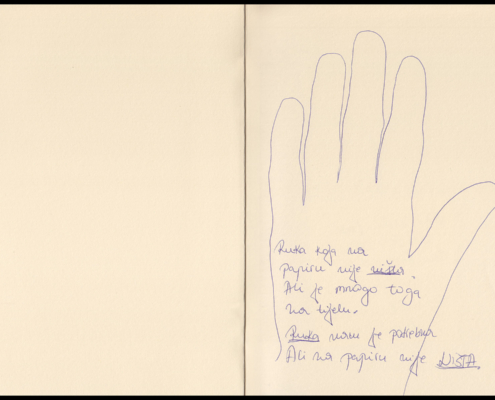 Ruka koja na
papiru nije ništa.
Ali je mnogo toga
na tijelu.
Ruka nam je potrebna
Ali na papiru nije NIŠTA.